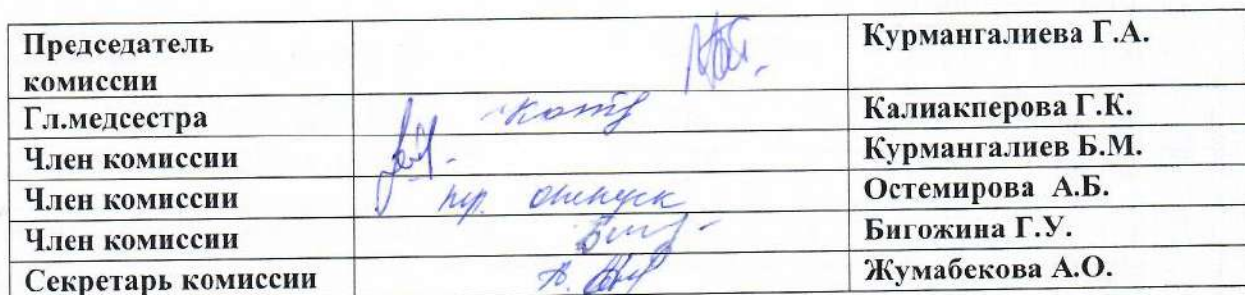 Председатель комиссии Курмангалиева Г.А.
Гл.медсестра Калиакперова Г.К.
Член комиссии Курмангалиев Б.М.
Член комиссии отпуск Остемирова А.Б.
Член комиссии Бигожина Г.У.
Секретарь комиссии Жумабекова А.О.